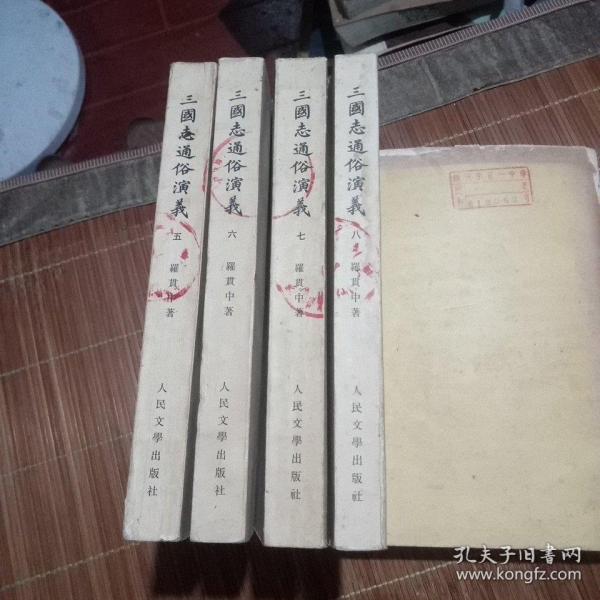 三國志通俗演義
五
羅貫中著
人民文學出版社
三國志通俗演義
六
羅貫中著
人民文學出版社
三國志通俗演義
七
羅貫中著
人民文學出版社
三國志通俗演義
八
羅貫中著
人民文學出版社
孔夫子旧书网
www.kongfz.com